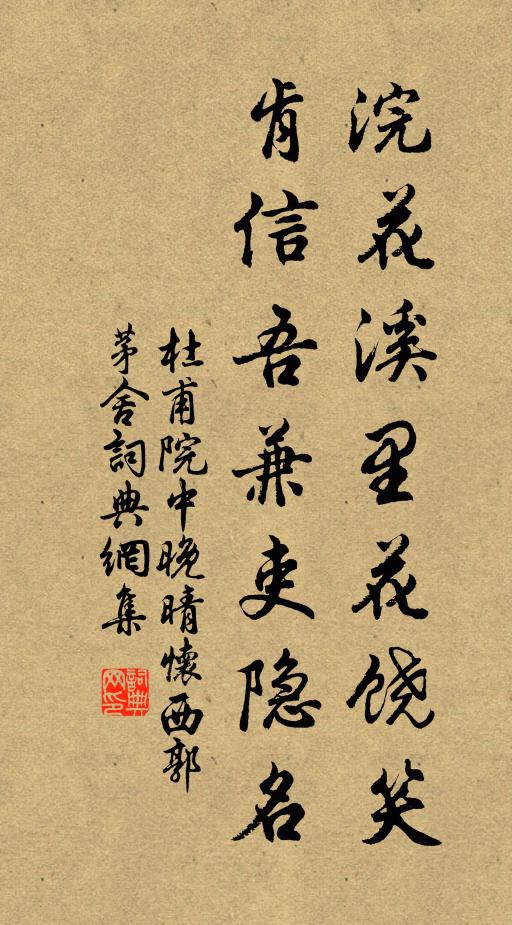 浣花溪里花饶笑
肯信吾兼吏隐名
杜甫院中晚晴懷西郭
茅舍詞典網集
詞典网印